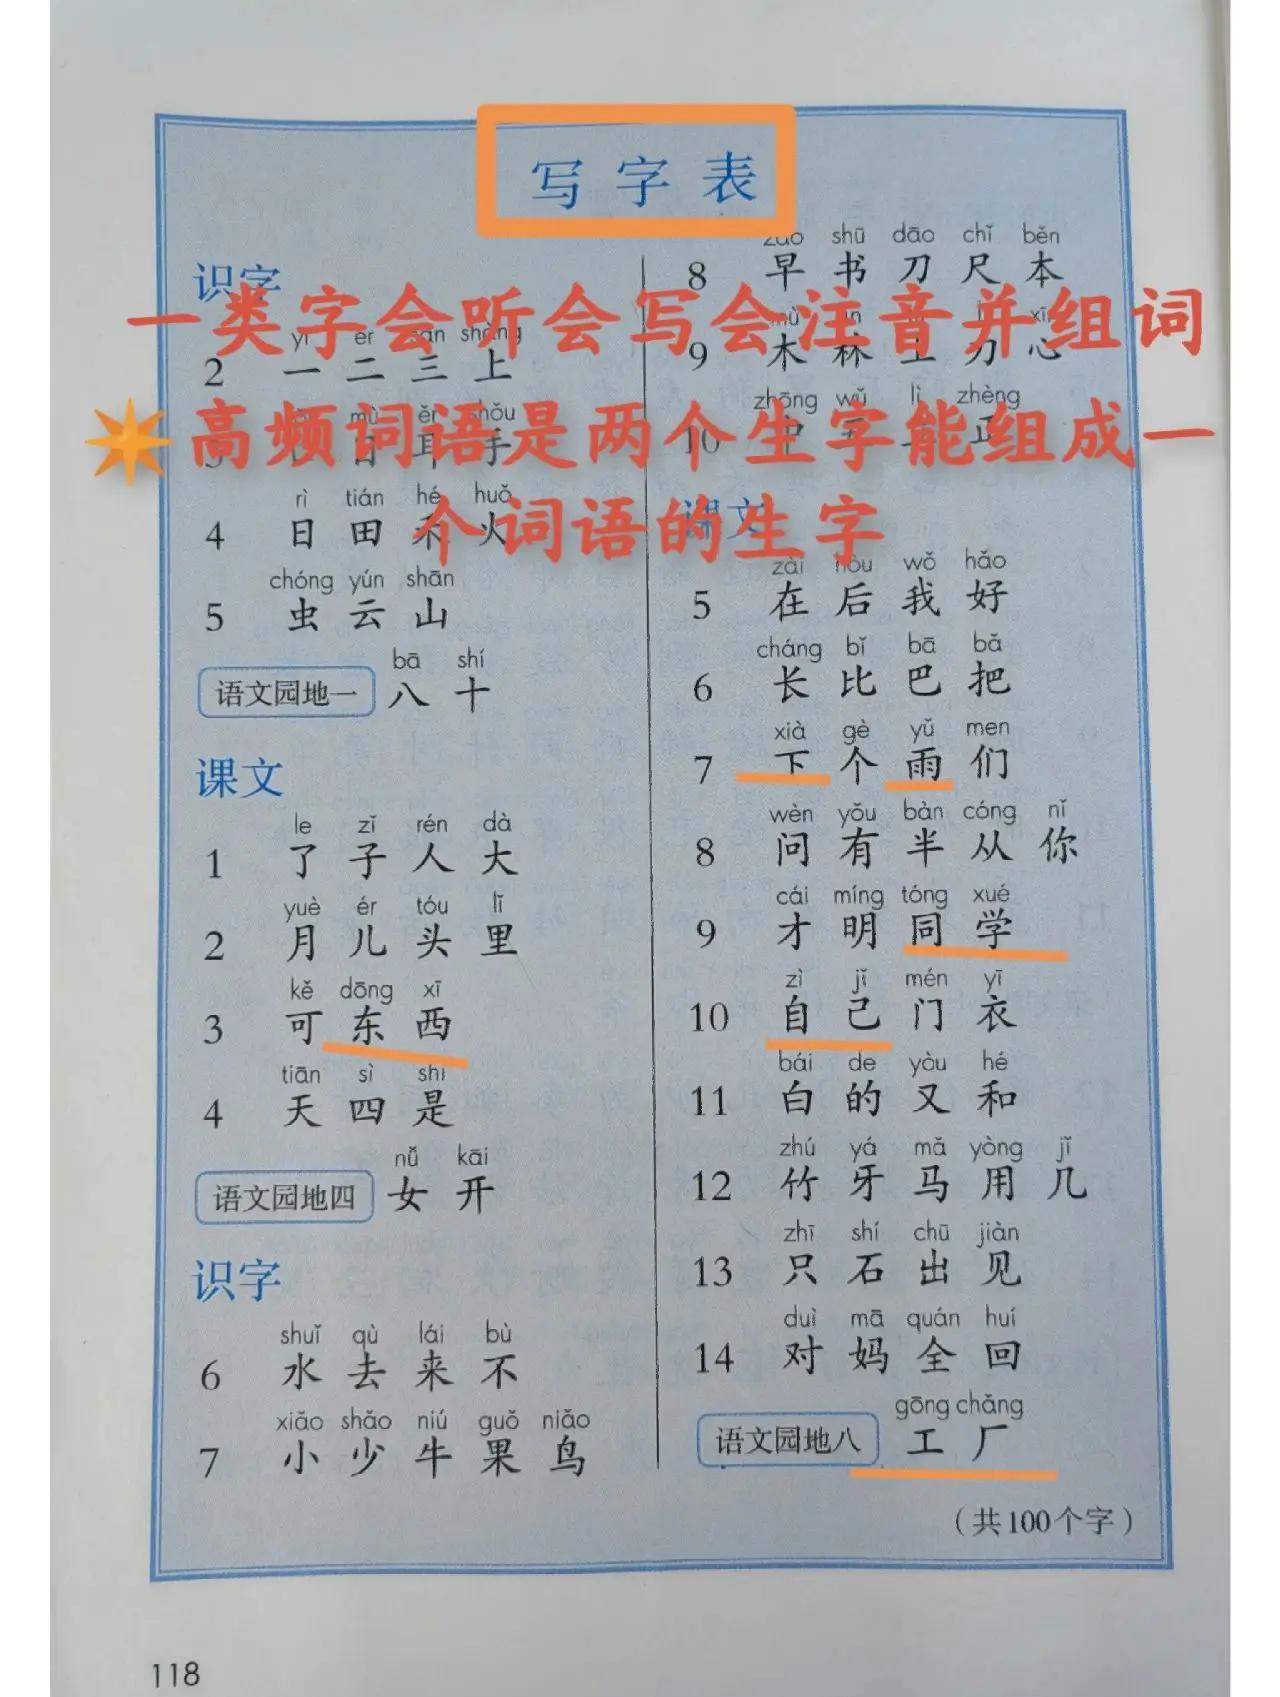 写字表
一类字会听会写会注音并组词
高频词语是两个生字能组成一
个词语的生字
识字
yī èr sān shàng
2 一 二 三 上
mù ěr shǒu
3 目 耳 手
rì tián hé huǒ
4 日 田 禾 火
chóng yún shān
5 虫 云 山
bā shí
语文园地一 八 十
课文
le zǐ rén dà
1 了 子 人 大
yuè ér tóu lǐ
2 月 儿 头 里
kě dōng xī
3 可 东 西
tiān sì shì
4 天 四 是
nǚ kāi
语文园地四 女 开
识字
shuǐ qù lái bù
6 水 去 来 不
xiǎo shǎo niú guǒ niǎo
7 小 少 牛 果 鸟
zǎo shū dāo chǐ běn
8 早 书 刀 尺 本
mù
9 木 林 土 力 心
zhōng wǔ lì zhèng
10 中 五 立 正
课文
zài hòu wǒ hǎo
5 在 后 我 好
cháng bǐ bā bǎ
6 长 比 巴 把
xià gè yǔ men
7 下 个 雨 们
wèn yǒu bàn cóng nǐ
8 问 有 半 从 你
cái míng tóng xué
9 才 明 同 学
zì jǐ mén yī
10 自 己 门 衣
bái de yòu hé
11 白 的 又 和
zhú yá mǎ yòng jǐ
12 竹 牙 马 用 几
zhī shí chū jiàn
13 只 石 出 见
duì mā quán huí
14 对 妈 全 回
gōng chǎng
语文园地八 工 厂
（共100个字）
118